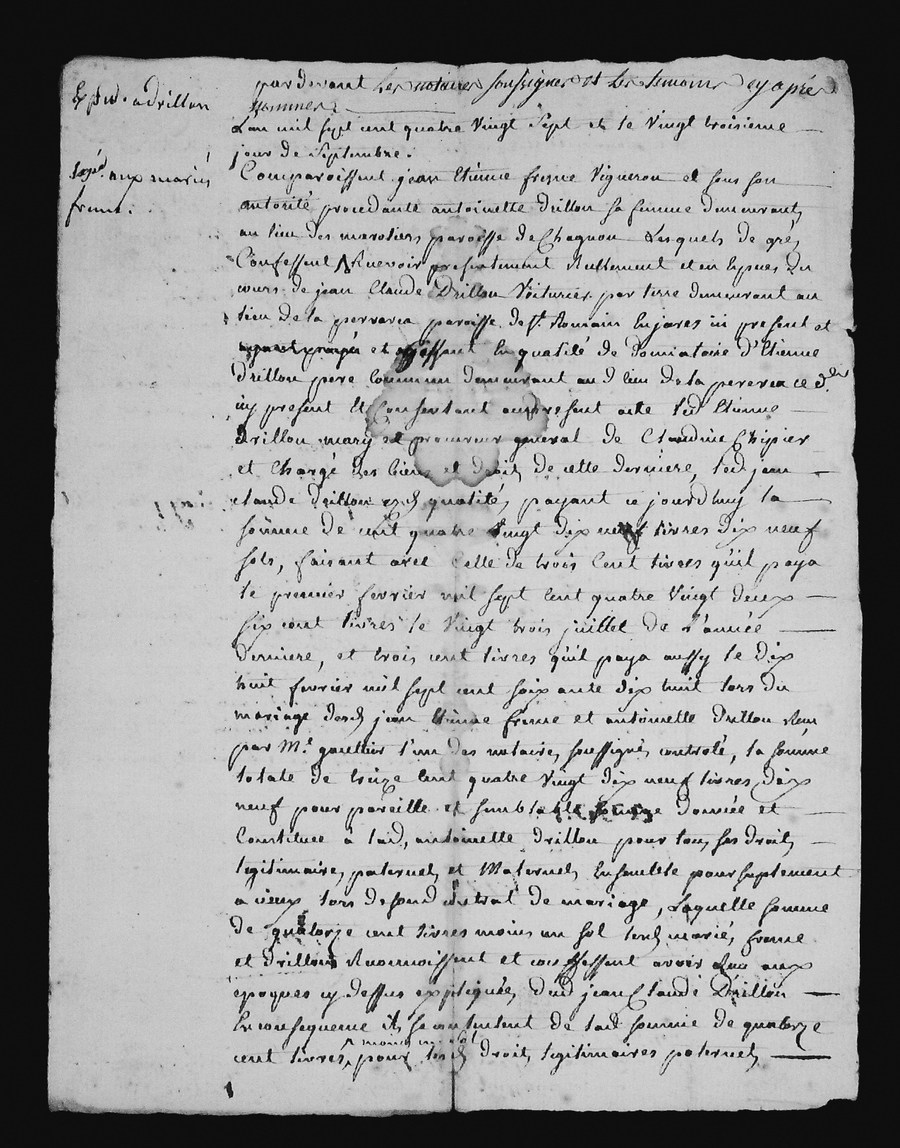 Expd. a drillon
expd. aux mariés
frene.
par devant Les notaires soussignes et Les temoins cy après
nommes
L'an mil sept cent quatre vingt sept et le vingt troisieme
jour de Septembre.
Comparoissent jean Etienne frene Vigneron et sous son
autorité procedante antoinette drillon sa femme demeurants
au lieu des marotiers paroisse de Chagnon Lesquels de gré
Confessent Recevoir presentement Reellement et en Especes du
cours de jean Claude Drillon Voiturier par terre demeurant au
lieu de la perrarea paroisse de St. Romain En jares ici present et
et En qualité de Donnataire d'Etienne
Drillon pere Commun demeurant aud. lieu de la pererea
icy present Et Consentant au present acte led. Etienne
drillon mary et procureur general de Claudine Chipier
et Chargé des biens et droits de cette derniere, led. jean
claude drillon esd. qualités payant ce jourdhuy la
somme de cent quatre vingt dix neuf livres dix neuf
sols, faisant avec Celle de trois Cent livres qu'il paya
le premier fevrier mil sept cent quatre vingt deux
six cent livres le vingt trois juillet de l'année
derniere, et trois cent livres qu'il paya aussy le dix
huit fevrier mil sept cent soixante dix huit lors du
mariage desd. jean Etienne frene et antoinette drillon Reçu
par Me. gaultier l'un des notaires soussignés controlé, la somme
totale de treize Cent quatre vingt dix neuf livres dix
neuf pour pareille et semblable somme donnée et
Constituée à lad. antoinette drillon pour tous ses droits
legitimaires paternels et Maternels Ensemble pour suplement
a iceux lors de sond. contrat de mariage, Laquelle somme
de quatorze cent livres moins un sol lesd. mariés frene
et drillon Reconnoissent et confessent avoir Reçu aux
epoques cy dessus expliquées dud. jean Claude Drillon
En consequence ils se contentent de lad. somme de quatorze
cent livres moins un sol pour lesd. droits legitimaires paternels